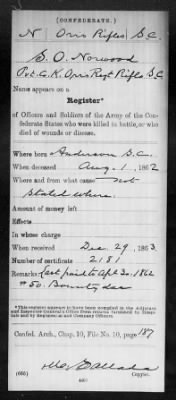 (CONFEDERATE.)
N Orrs Rifles S.C.
S. O. Norwood
Pvt. Co. K. Orrs Regt Rifles S.C
Name appears on a
Register*
of Officers and Soldiers of the Army of the Con-
federate States who were killed in battle, or who
died of wounds or disease.
Where born Anderson S.C.
When deceased Aug. 1, 1862
Where and from what cause Not
stated where.
Amount of money left
Effects
In whose charge
When received Dec 29, 1863
Number of certificate 2181
Remarks Last paid to Apl 30 1862
$50. Bounty due
*This register appears to have been compiled in the Adjutant
and Inspector General's Office, from returns furnished to Hospi-
tals and by Regimental and Company Officers.
Confed. Arch., Chap. 10, File No. 10, page 187
(635)
Copyist.